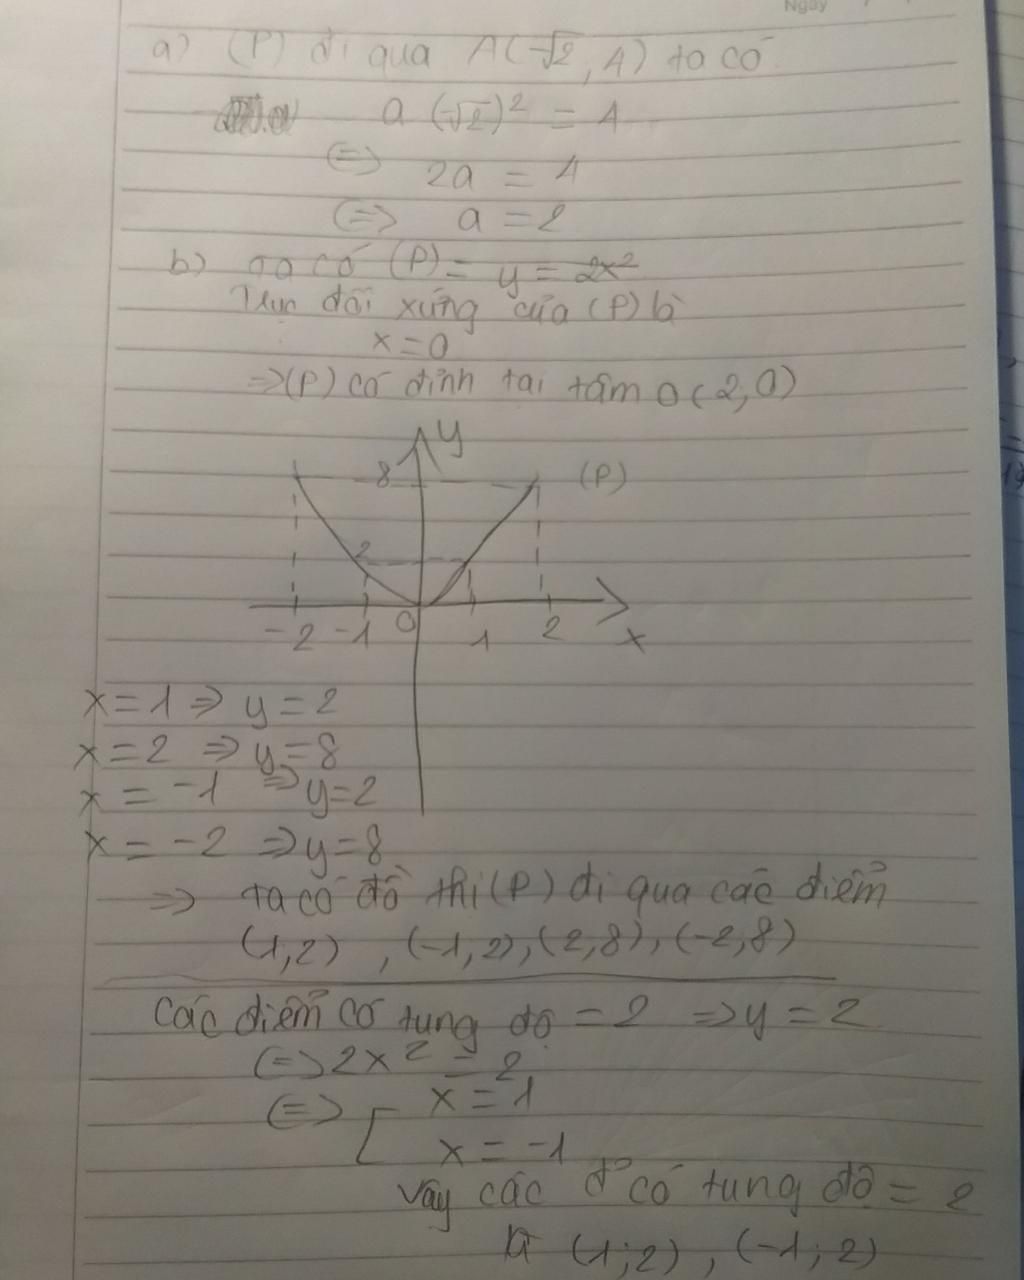 Ngày
a) (P) đi qua A(-√2, 4) ta có
a (-√2)² = 4
(=) 2a = 4
(=) a = 2
b) Ta có (P) = y = 2x²
Trục đối xứng của (P) là
x = 0
=> (P) có đỉnh tại tâm O (2,0)
y
8 (P)
2
-2 -1 0 1 2 x
x = 1 => y = 2
x = 2 => y = 8
x = -1 => y = 2
x = -2 => y = 8
=> ta có đồ thị (P) đi qua các điểm
(1,2) , (-1,2), (2,8), (-2,8)
Các điểm có tung độ = 2 => y = 2
(=) 2x² = 2
(=) [ x = 1
x = -1
vậy các đ' có tung độ = 2
là (1;2) , (-1;2)